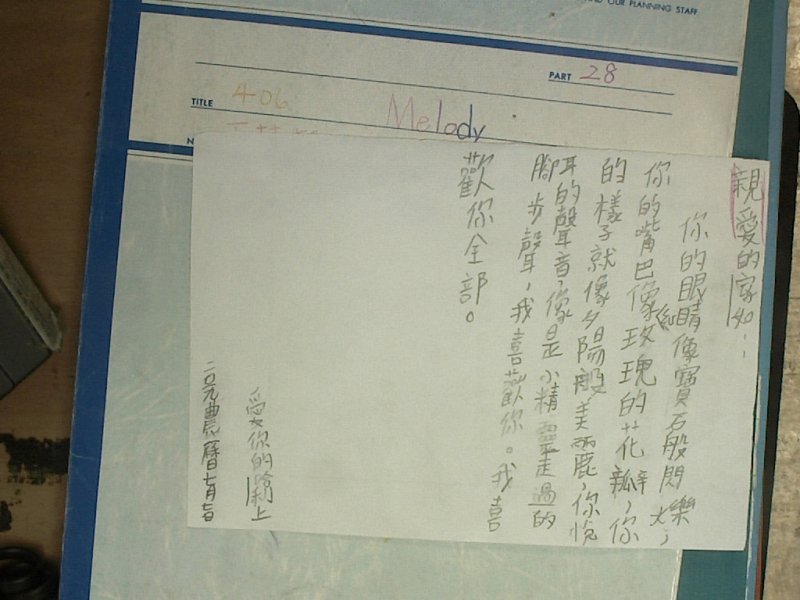 OUR PLANNING STAFF
PART 28
TITLE 406 Melody
親愛的家如：
你的眼睛像寶石般閃爍，
你的嘴巴像紅玫瑰的花瓣，你
的樣子就像夕陽般美麗，你悅
耳的聲音，像是小精靈走過的
腳步聲，我喜歡你。我喜
歡你全部。
愛你的上
農曆七月七日